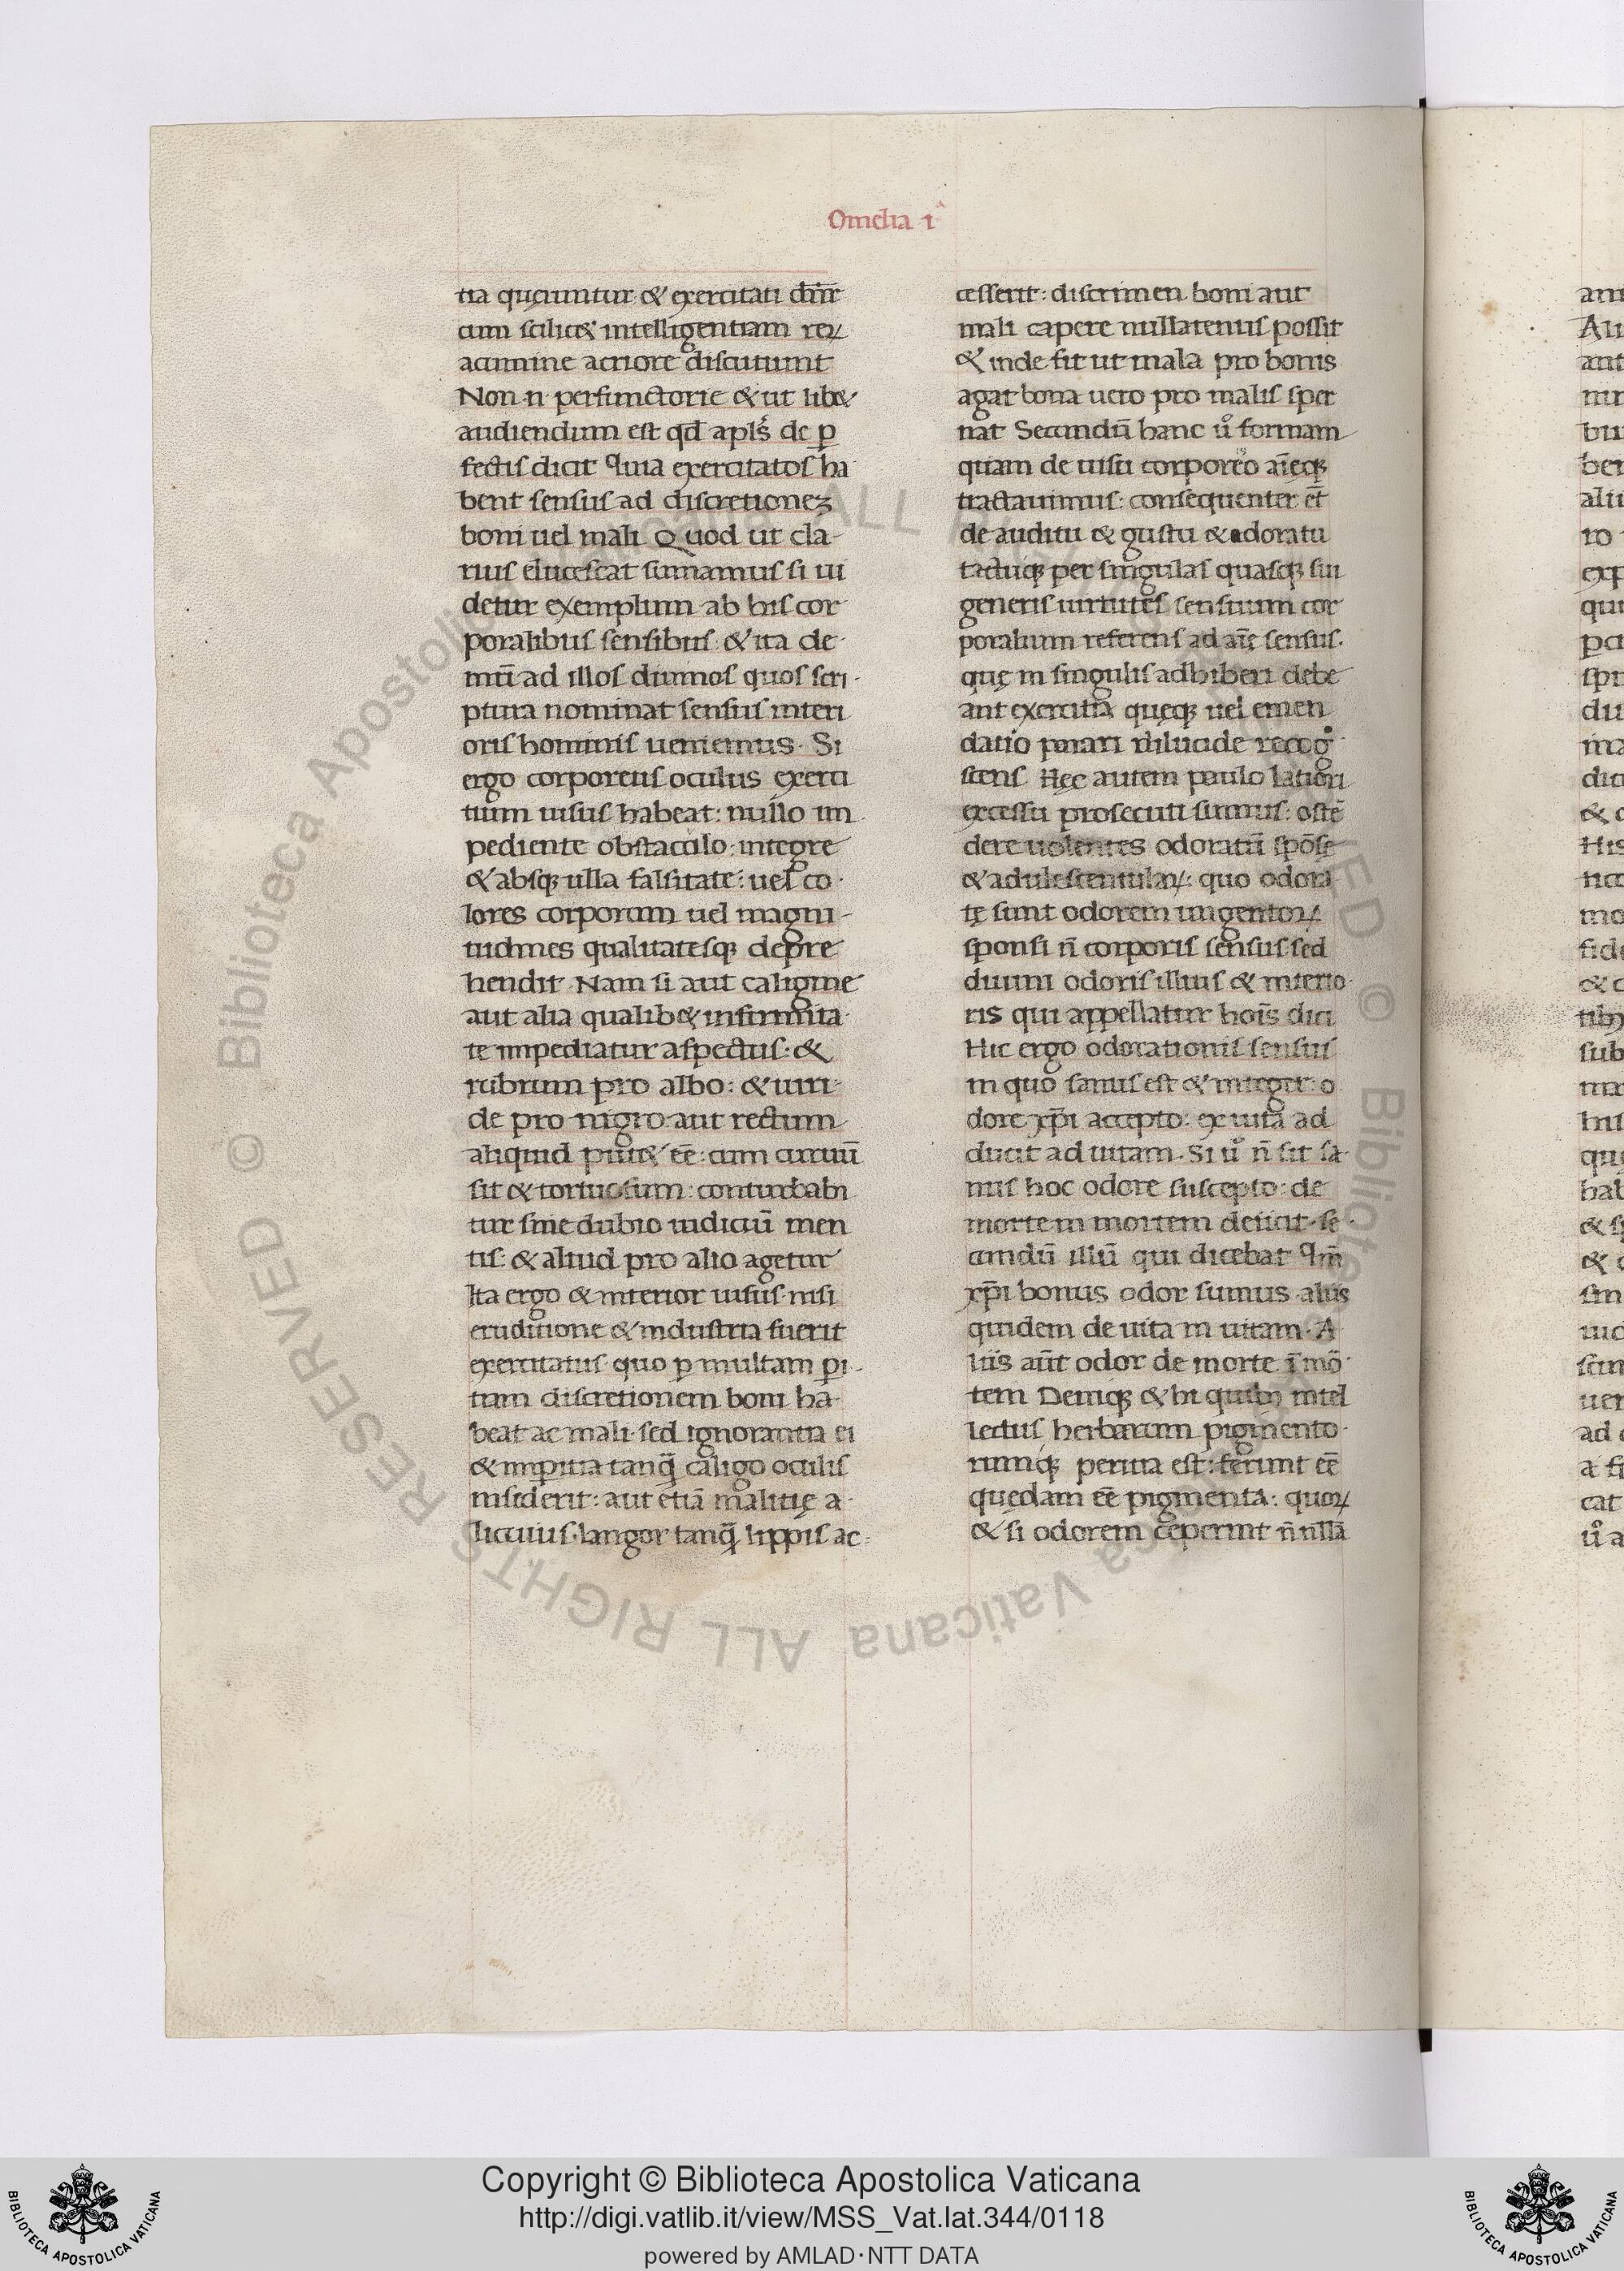 Omelia ia
tia queruntur & exercitati dn̄r
cum scilic& intelligentiam reꝝ
acumine acriore discutiunt
Non n̄ perfunctorie & ut lib&
audiendum est qđ apl̄s de ꝑ
fectis dicit Quia exercitatos ha
bent sensus ad discretionez
boni uel mali Quod ut cla-
rius elucescat sumamus si ui
detur exemplum ab his cor
poralibus sensibus & ita de-
mū ad illos diuinos quos scri-
ptura nominat sensus interi
oris hominis ueniemus. Si
ergo corporeus oculus exerci
tium uisus habeat: nullo im
pediente obstaculo: integre
& absqꝫ ulla falsitate: uel co-
lores corporum uel magni-
tudines qualitatesqꝫ depre
hendit. Nam si aut caligine
aut alia qualib& infirmita-
te impediatur aspectus: &
rubrum pro albo: & uiri-
de pro nigro: aut rectum
aliquid put& ēē: cum curuū
sit & tortuosum: conturbabi
tur sine dubio iudiciū men
tis: & aliud pro alio agetur
Ita ergo & interior uisus nisi
eruditione & industria fuerit
exercitatus quo ꝑ multam ꝑi-
tiam discretionem boni ha-
beat ac mali. sed ignorantia ei
& imꝑitia tanq̄ caligo oculis
insiderit: aut etiā malitię a-
licuius. langor tanq̄ lippis ac-
cesserit: discrimen boni aut
mali capere nullatenus possit
& inde fit ut mala pro bonis
agat bona uero pro malis sper
nat Secundū hanc u͛o formam
quam de uisu corporeo aīeqꝫ
tractauimus: consequenter et̄
de auditu & gustu & adoratu
tactuqꝫ per singulas quasqꝫ sui
generis uirtutes sensuum cor
poralium referens ad aīę sensus.
quę in singulis adhiberi debe
ant exercitia quęqꝫ uel emen
datio parari dilucide recog
scens Hęc autem paulo latiori
excessu prosecuti sumus: ostē
dere uolentes odoratū spōsę
& adulescentulaꝝ: quo odora
tę sunt odorem ungentoꝝ
sponsi n̄ corporis sensus sed
diuini odoris illius & interio-
ris qui appellatur hoīs dici
Hic ergo odorationis sensus
in quo sanus est & integer: o
dore xp̄i accepto: ex uita ad
ducit ad uitam. Si u͛o n̄ sit sa-
nus hoc odore suscepto: de
morte in mortem deiicit. se-
cundū illū qui dicebat Qm̄
xp̄i bonus odor sumus aliis
quidem de uita in uitam. A
liis aūt odor de morte ī mō-
tem Deniqꝫ & hi quibꝫ intel
lectus herbarum pigmento-
rumqꝫ peritia est: ferunt eē
quędam eē pigmenta: quoꝝ
& si odorem ceperint n̄nulla
Copyright © Biblioteca Apostolica Vaticana
http://digi.vatlib.it/view/MSS_Vat.lat.344/0118
powered by AMLAD·NTT DATA